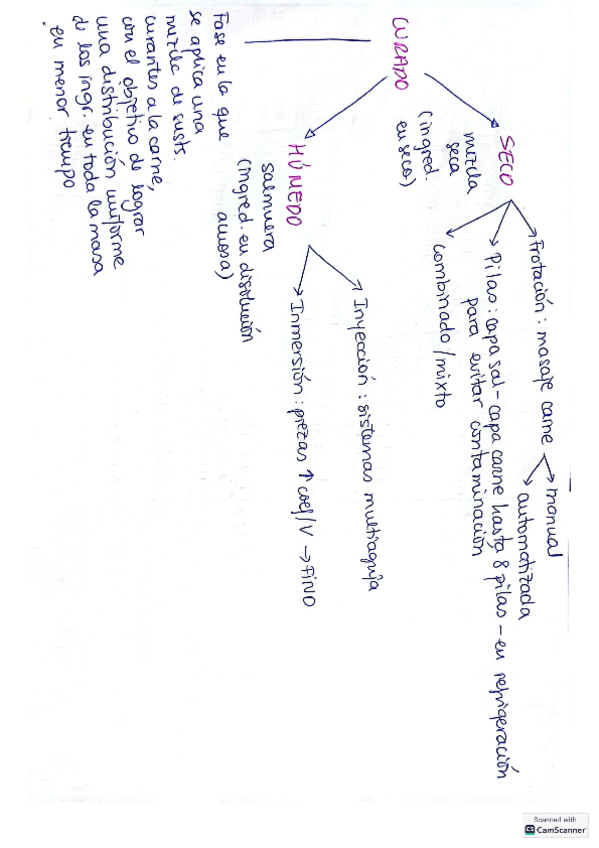 CURADO
Fase en la que
se aplica una
mezcla de susts.
curantes a la carne,
con el objetivo de lograr
una distribución uniforme
d los ingr. en toda la masa
en menor tiempo
SECO
mezcla
seca
(ingred.
en seco)
Frotación: masaje carne
manual
automatizada
Pilas: capa sal - capa carne hasta 8 pilas - en refrigeración
para evitar contaminación
combinado/mixto
HÚMEDO
salmuera
(ingred. en disolución
acuosa)
Inyección: sistemas multiaguja
Inmersión: piezas ↑ coef/V → FINO
Scanned with
CS CamScanner